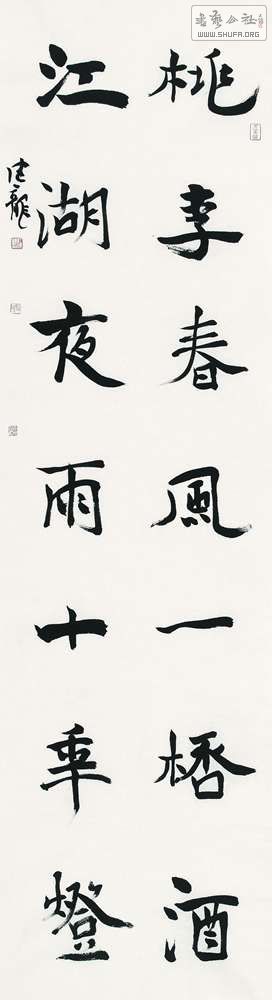 桃李春風一桮酒
江湖夜雨十年燈
建龍
書藝公社
WWW.SHUFA.ORG